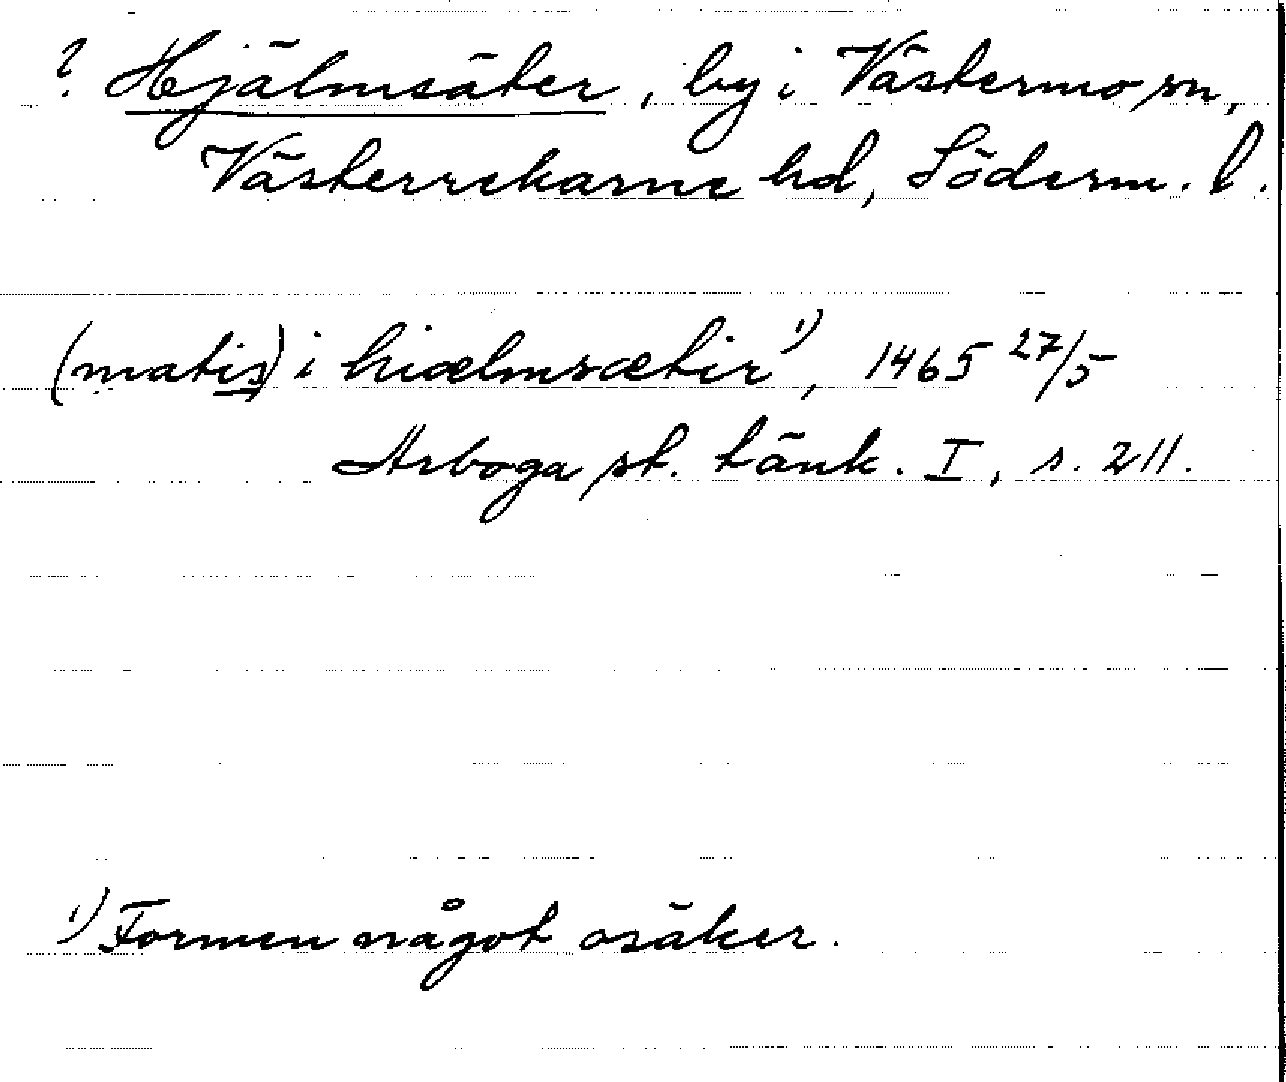 ? Hjälmsäter, by i Västermo sn,
Västerrekarne hd, Söderm. l.
(matis) i hiælmsætir¹⁾, 1465 27/5
Arboga st. tänk. I, s. 211.
¹⁾ Formen något osäker.